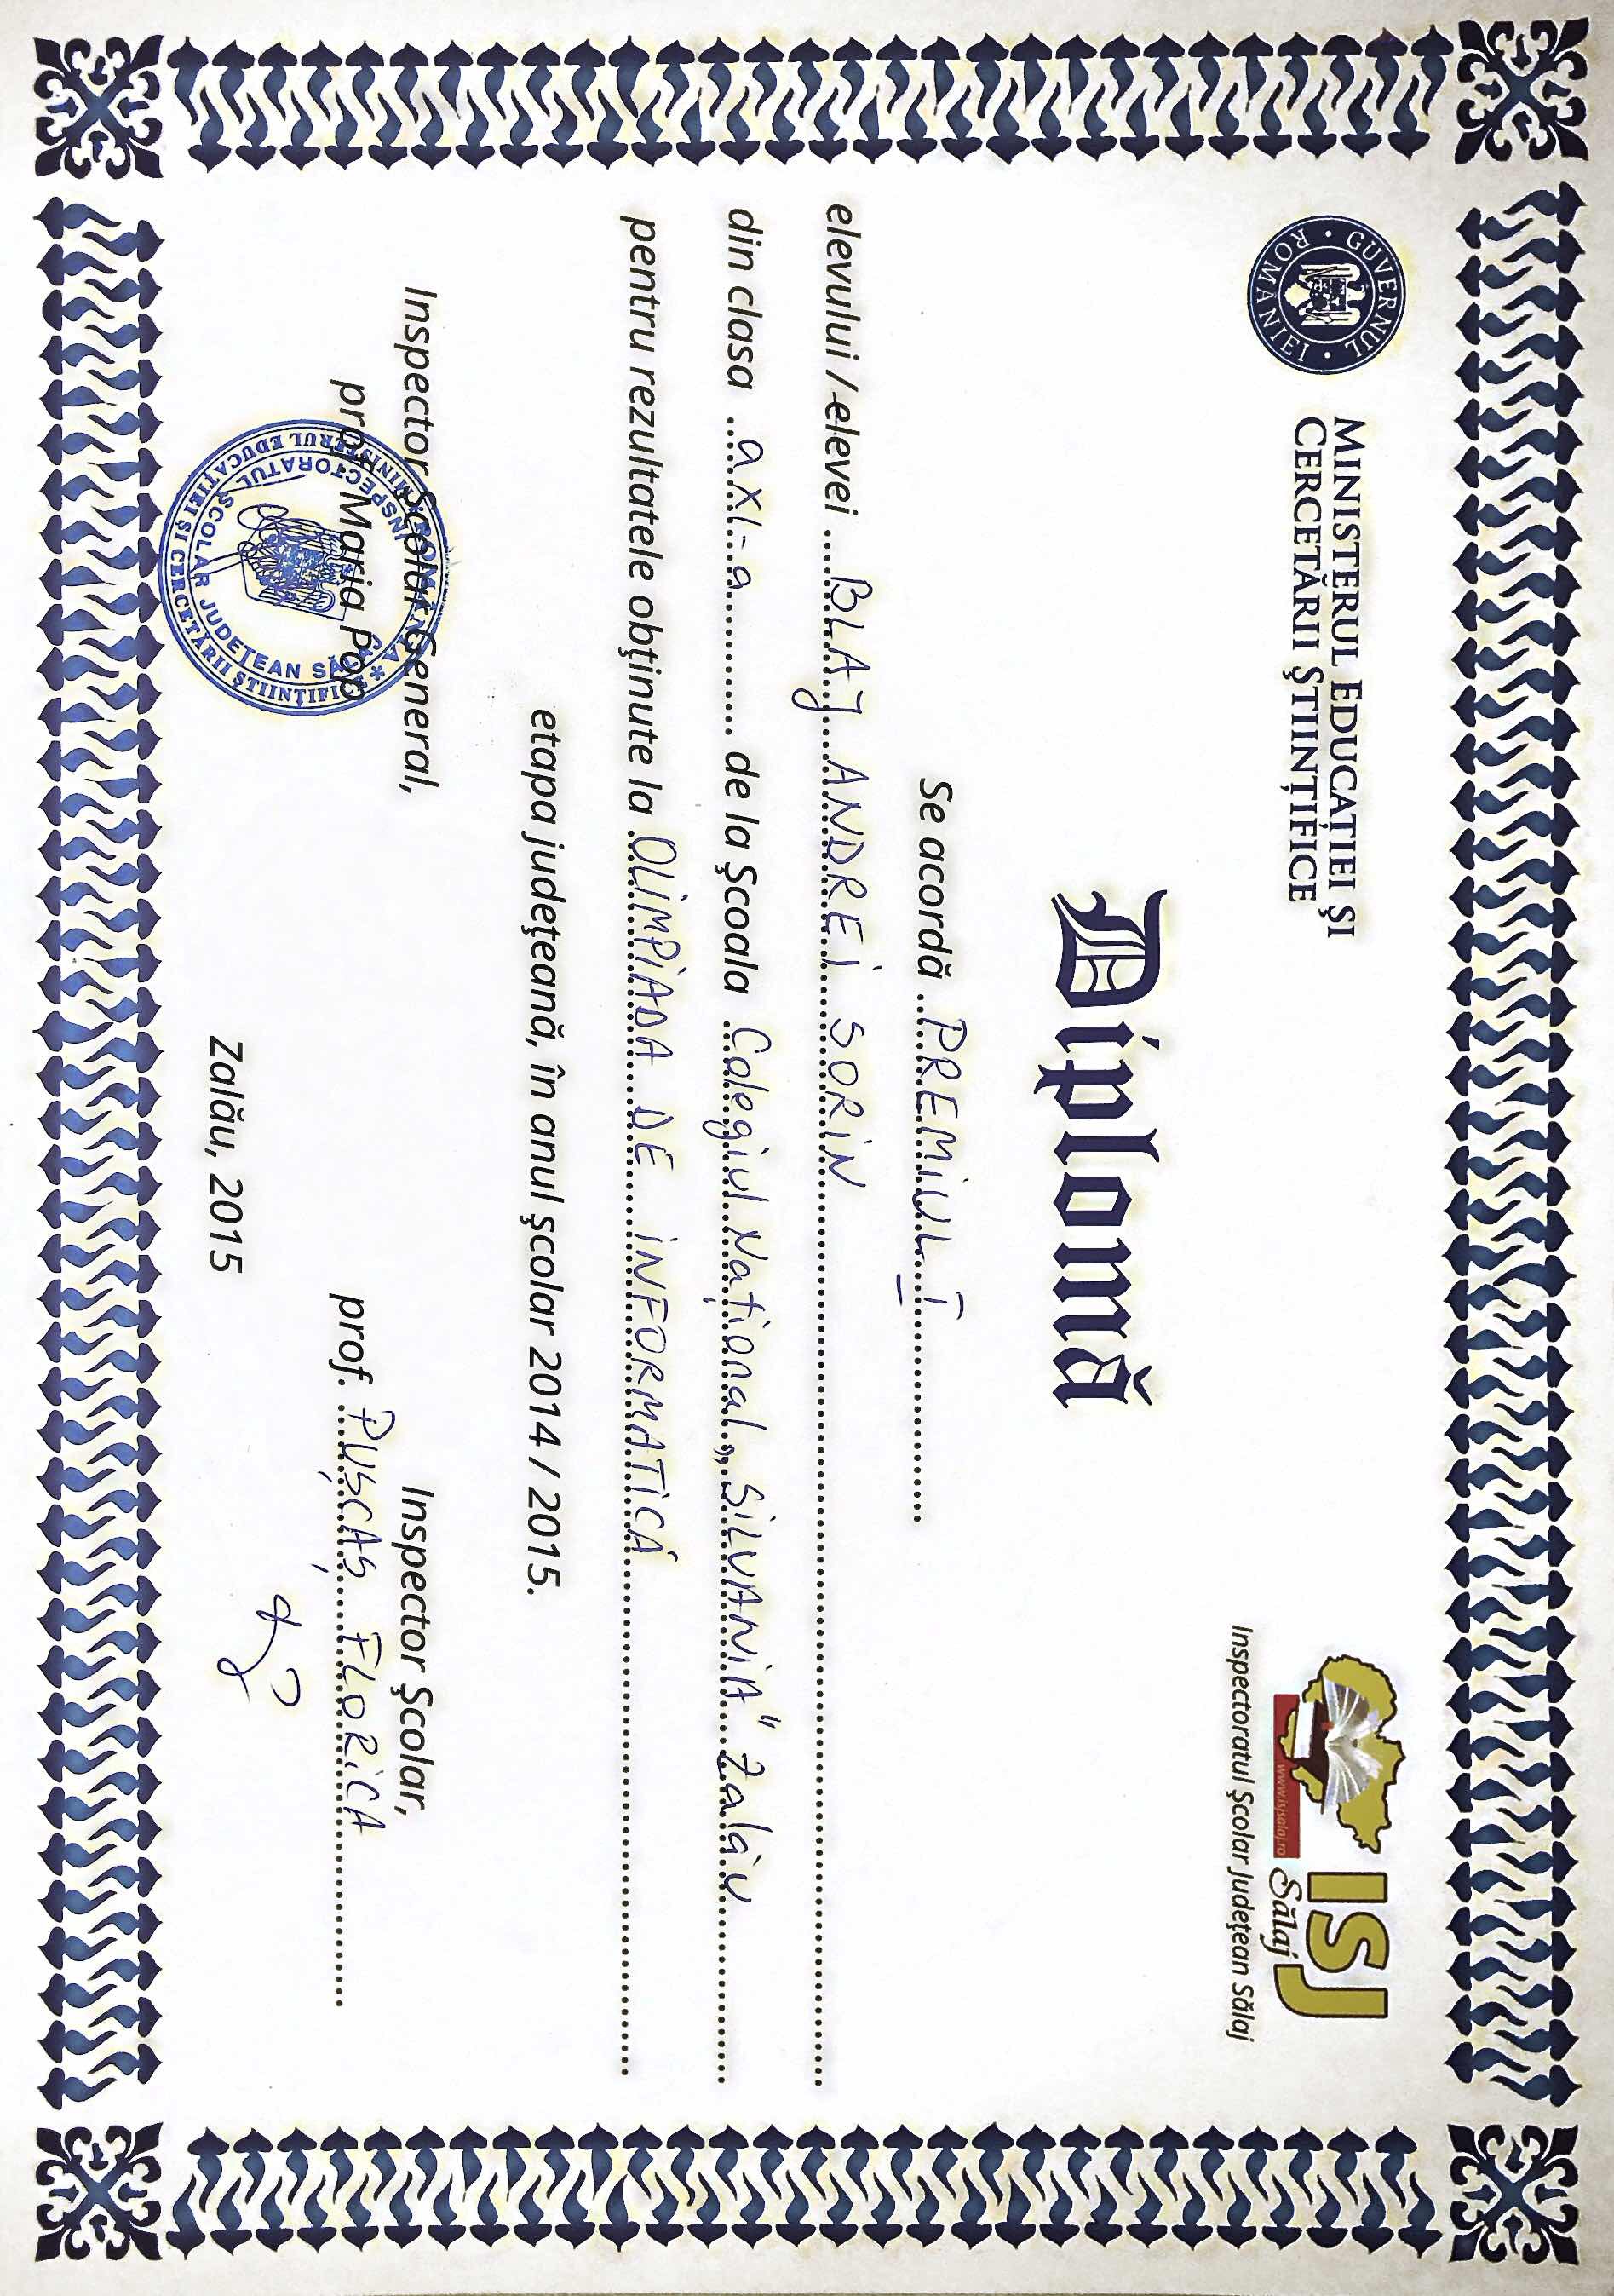 GUVERNUL ROMÂNIEI
MINISTERUL EDUCAȚIEI ȘI
CERCETĂRII ȘTIINȚIFICE
www.isjsalaj.ro
ISJ
Sălaj
Inspectoratul Școlar Județean Sălaj
Diplomă
Se acordă PREMIUL I
elevului / elevei BLAJ ANDREI SORIN
din clasa a XI-a de la Școala Colegiul Național „SILVANIA" Zalău
pentru rezultatele obținute la OLIMPIADA DE INFORMATICĂ
etapa județeană, în anul școlar 2014 / 2015.
Inspector Școlar General,
prof. Maria Pop
ROMÂNIA * MINISTERUL EDUCAȚIEI ȘI CERCETĂRII ȘTIINȚIFICE *
INSPECTORATUL ȘCOLAR JUDEȚEAN SĂLAJ
Inspector Școlar,
prof. PUȘCAȘ FLORICA
Zalău, 2015